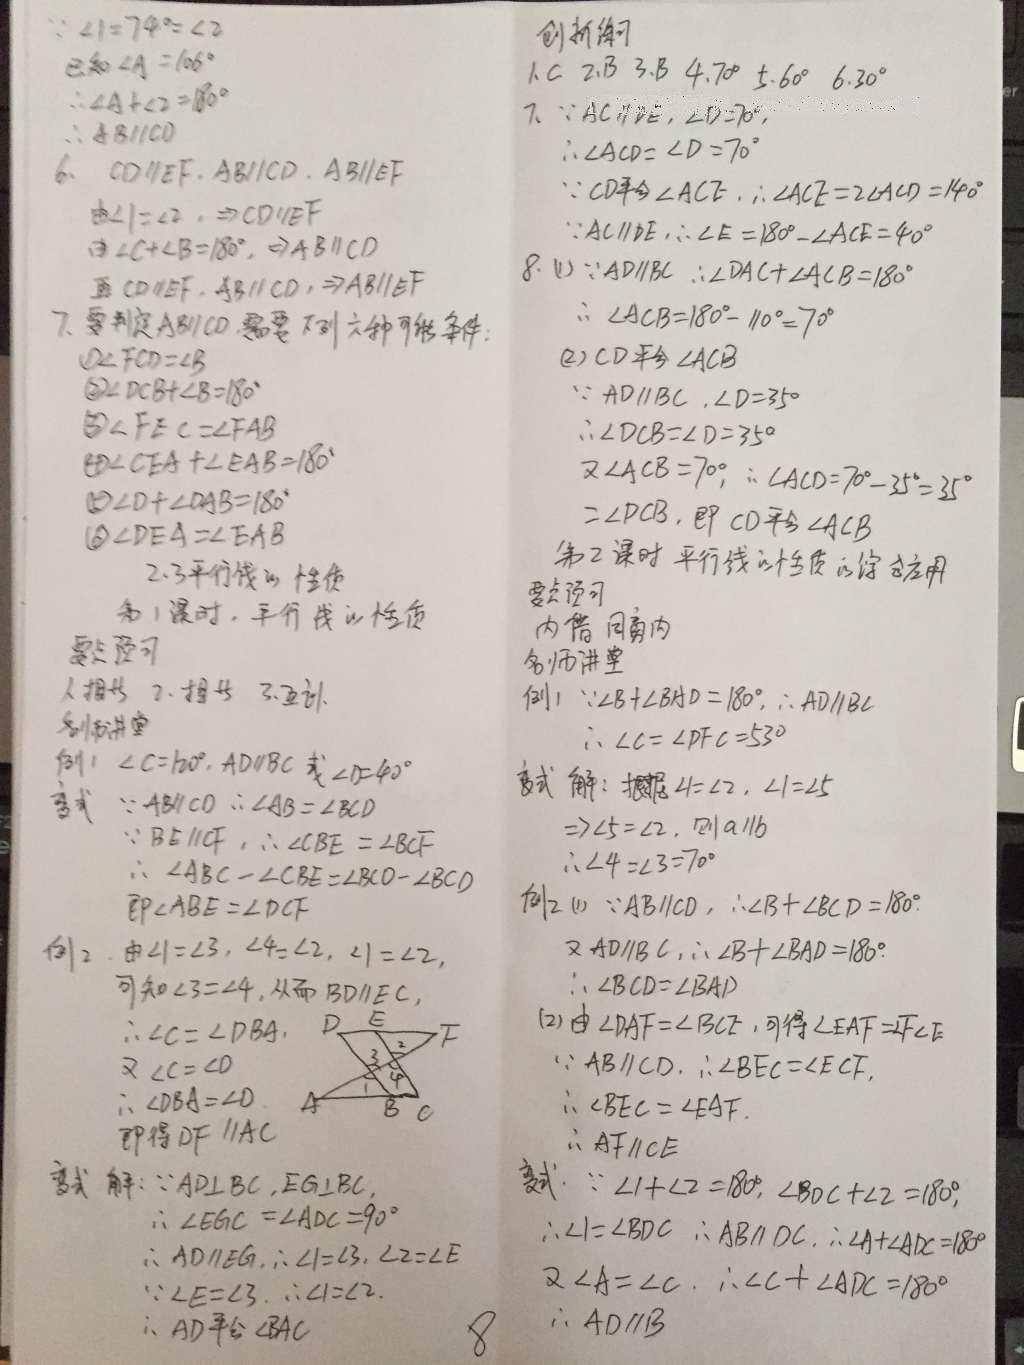 ∵ ∠1=74°=∠2
已知 ∠A=106°
∴∠A+∠2=180°
∴ AB//CD
6. CD//EF. AB//CD. AB//EF
由∠1=∠2, ⇒CD//EF
由∠C+∠B=180°, ⇒AB//CD
再 CD//EF. AB//CD, ⇒AB//EF
7. 要判定AB//CD,需要下列六种可能条件:
①∠FCD=∠B
②∠DCB+∠B=180°
③∠FEC=∠FAB
④∠CEA+∠EAB=180°
⑤∠D+∠DAB=180°
⑥∠DEA=∠EAB
2.3平行线的性质
第1课时. 平行线的性质
要点预习
1.相等 2.相等 3.互补.
名师讲堂
例1 ∠C=120°. AD//BC 或∠D=40°
变式 ∵AB//CD ∴∠AB=∠BCD
∵BE//CF, ∴∠CBE=∠BCF
∴ ∠ABC-∠CBE=∠BCD-∠BCD
即∠ABE=∠DCF
例2. 由∠1=∠3, ∠4=∠2, ∠1=∠2,
可知∠3=∠4,从而BD//EC,
∴∠C=∠DBA.
又∠C=∠D
∴∠DBA=∠D.
即得DF//AC
D E F
2
3
4
1
A B C
变式 解: ∵AD⊥BC, EG⊥BC,
∴∠EGC=∠ADC=90°
∴ AD//EG, ∴∠1=∠3, ∠2=∠E
∵∠E=∠3. ∴∠1=∠2.
∴ AD平分∠BAC
8
创新练习
1.C 2.B 3.B 4.70° 5.60° 6.30°
7. ∵AC//DE, ∠D=70°,
∴∠ACD=∠D=70°
∵CD平分∠ACE, ∴∠ACE=2∠ACD=140°
∵AC//DE, ∴∠E=180°-∠ACE=40°
8.(1) ∵AD//BC ∴∠DAC+∠ACB=180°
∴ ∠ACB=180°-110°=70°
(2) CD平分∠ACB
∵ AD//BC, ∠D=35°
∴∠DCB=∠D=35°
又∠ACB=70°, ∴∠ACD=70°-35°=35°
=∠DCB, 即 CD平分∠ACB
第2课时 平行线的性质的综合应用
要点预习
内错 同旁内
名师讲堂
例1 ∵∠B+∠BAD=180°, ∴AD//BC
∴ ∠C=∠DFC=53°
变式 解: 根据∠1=∠2, ∠1=∠5
⇒∠5=∠2, 则a//b
∴∠4=∠3=70°
例2(1) ∵AB//CD, ∴∠B+∠BCD=180°.
又AD//BC, ∴∠B+∠BAD=180°.
∴∠BCD=∠BAD
(2)由∠DAF=∠BCE, 可得∠EAF=∠E
∵ AB//CD. ∴∠BEC=∠ECF.
∴∠BEC=∠EAF.
∴AF//CE
变式. ∵ ∠1+∠2=180°, ∠BDC+∠2=180°,
∴∠1=∠BDC ∴AB//DC. ∴∠A+∠ADC=180°
又∠A=∠C. ∴∠C+∠ADC=180°
∴ AD//B